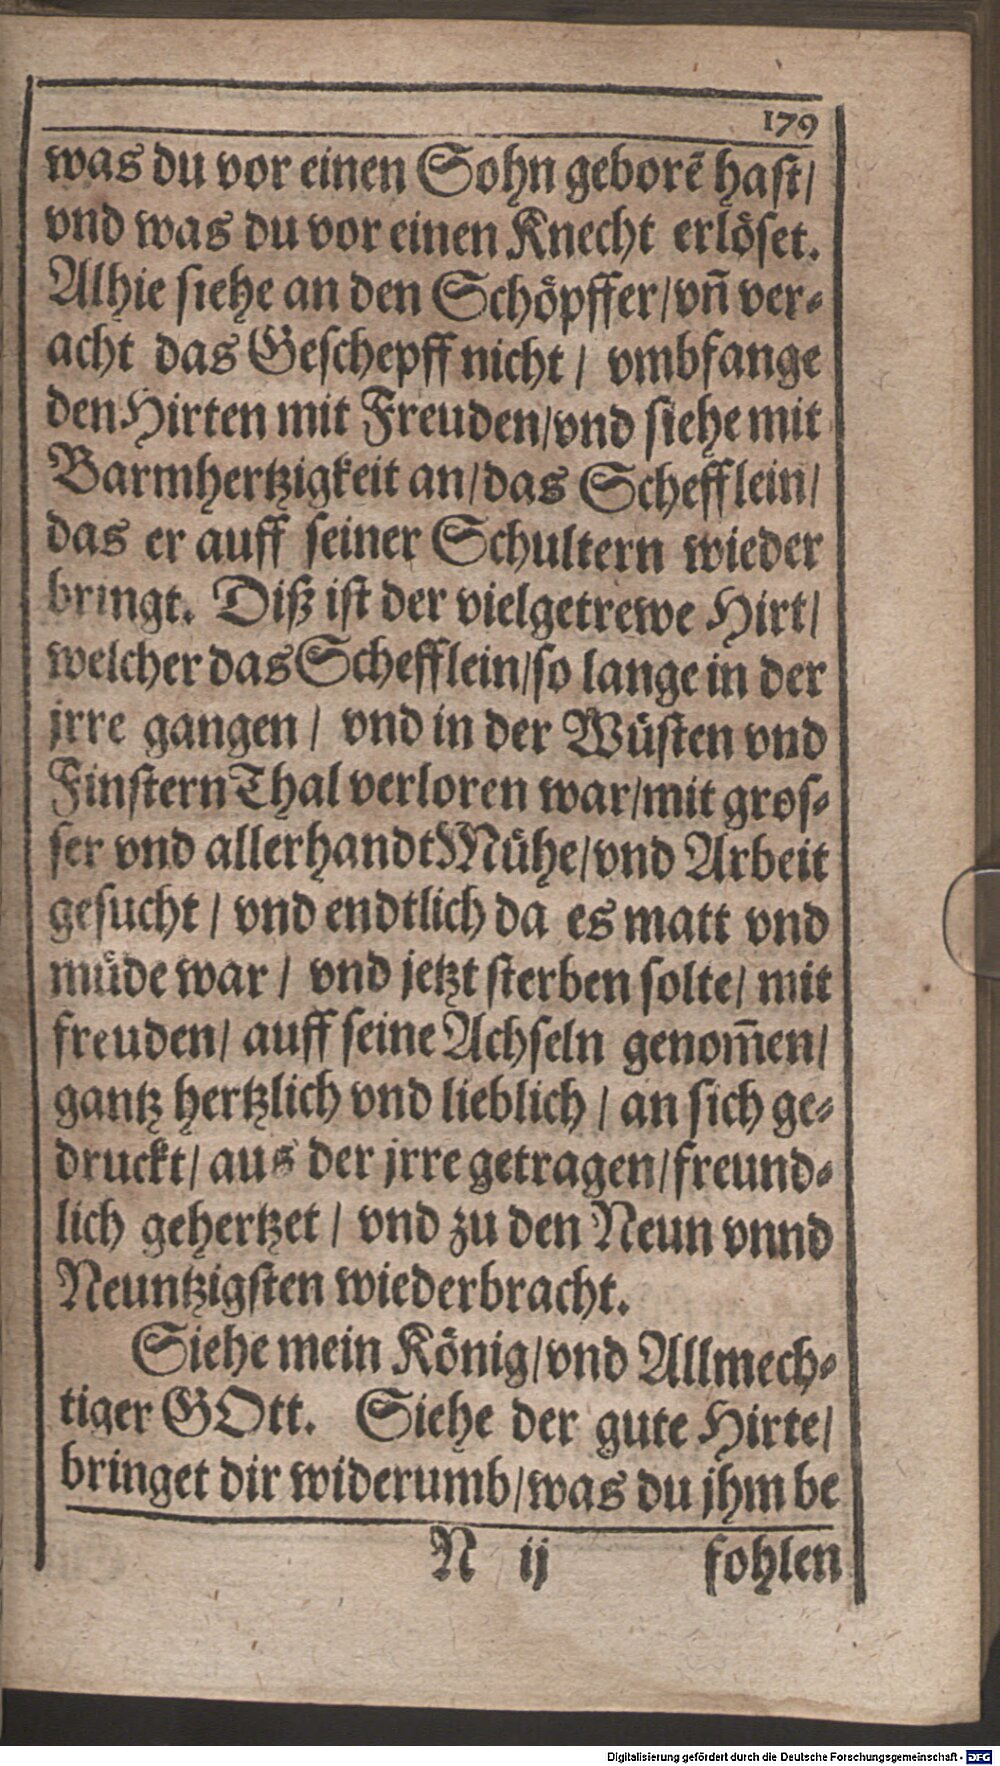 179
was du vor einen Sohn geborẽ hast/
vnd was du vor einen Knecht erlöset.
Alhie siehe an den Schöpffer/vñ ver-
acht das Geschepff nicht/ vmbfange
den Hirten mit Freuden/vnd siehe mit
Barmhertzigkeit an/das Schefflein/
das er auff seiner Schultern wieder
bringt. Diß ist der vielgetrewe Hirt/
welcher das Schefflein/so lange in der
jrre gangen/ vnd in der Wüsten vnd
Finstern Thal verloren war/mit gros-
ser vnd allerhandt Mühe/vnd Arbeit
gesucht/ vnd endtlich da es matt vnd
müde war/ vnd jetzt sterben solte/ mit
freuden/ auff seine Achseln genom̃en/
gantz hertzlich vnd lieblich/ an sich ge-
druckt/ aus der jrre getragen/freund-
lich gehertzet/ vnd zu den Neun vnnd
Neuntzigsten wiederbracht.
Siehe mein König/vnd Allmech-
tiger GOtt. Siehe der gute Hirte/
bringet dir widerumb/was du jhm be
N ij fohlen
Digitalisierung gefördert durch die Deutsche Forschungsgemeinschaft - DFG